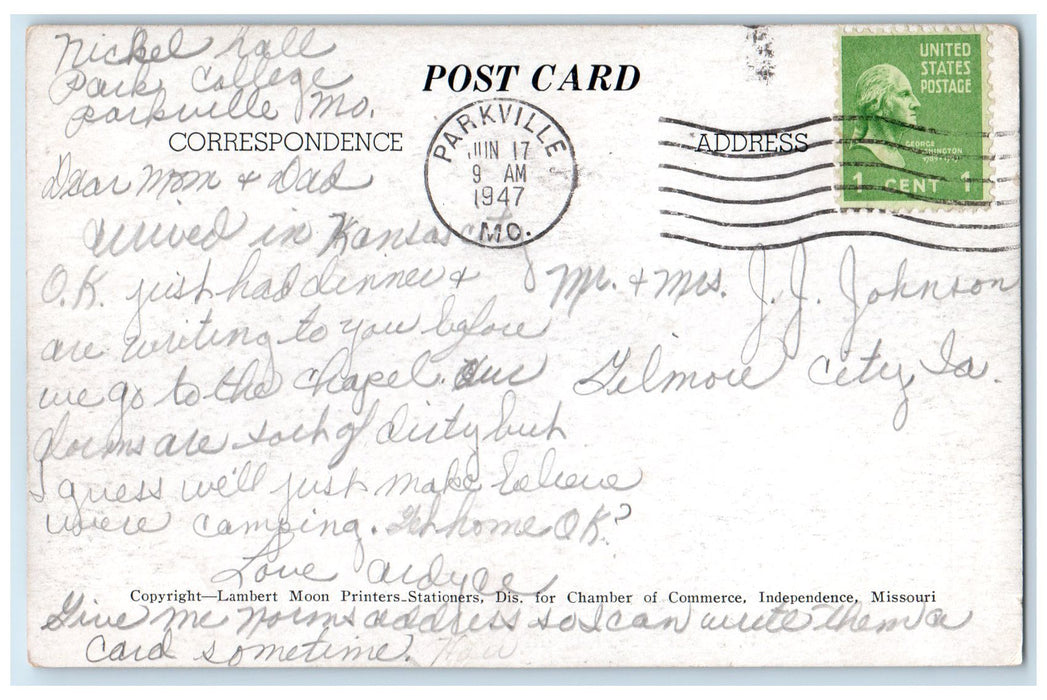 Nickel hall
Park College
Parkville Mo.
POST CARD
CORRESPONDENCE
ADDRESS
PARKVILLE
JUN 17
9 AM
1947
MO.
UNITED
STATES
POSTAGE
GEORGE
WASHINGTON
1 CENT 1
Dear Mom + Dad
Arrived in Kansas City
O.K. just had dinner +
are writing to you before
we go to the chapel. Our
dorms are sort of dirty but
I guess we'll just make believe
were camping. Get home OK?
Love Ardyce
Mr. + Mrs. J. J. Johnson
Gilmore City, Ia.
Copyright—Lambert Moon Printers-Stationers, Dis. for Chamber of Commerce, Independence, Missouri
Give me Norms address so I can write them a
card sometime.